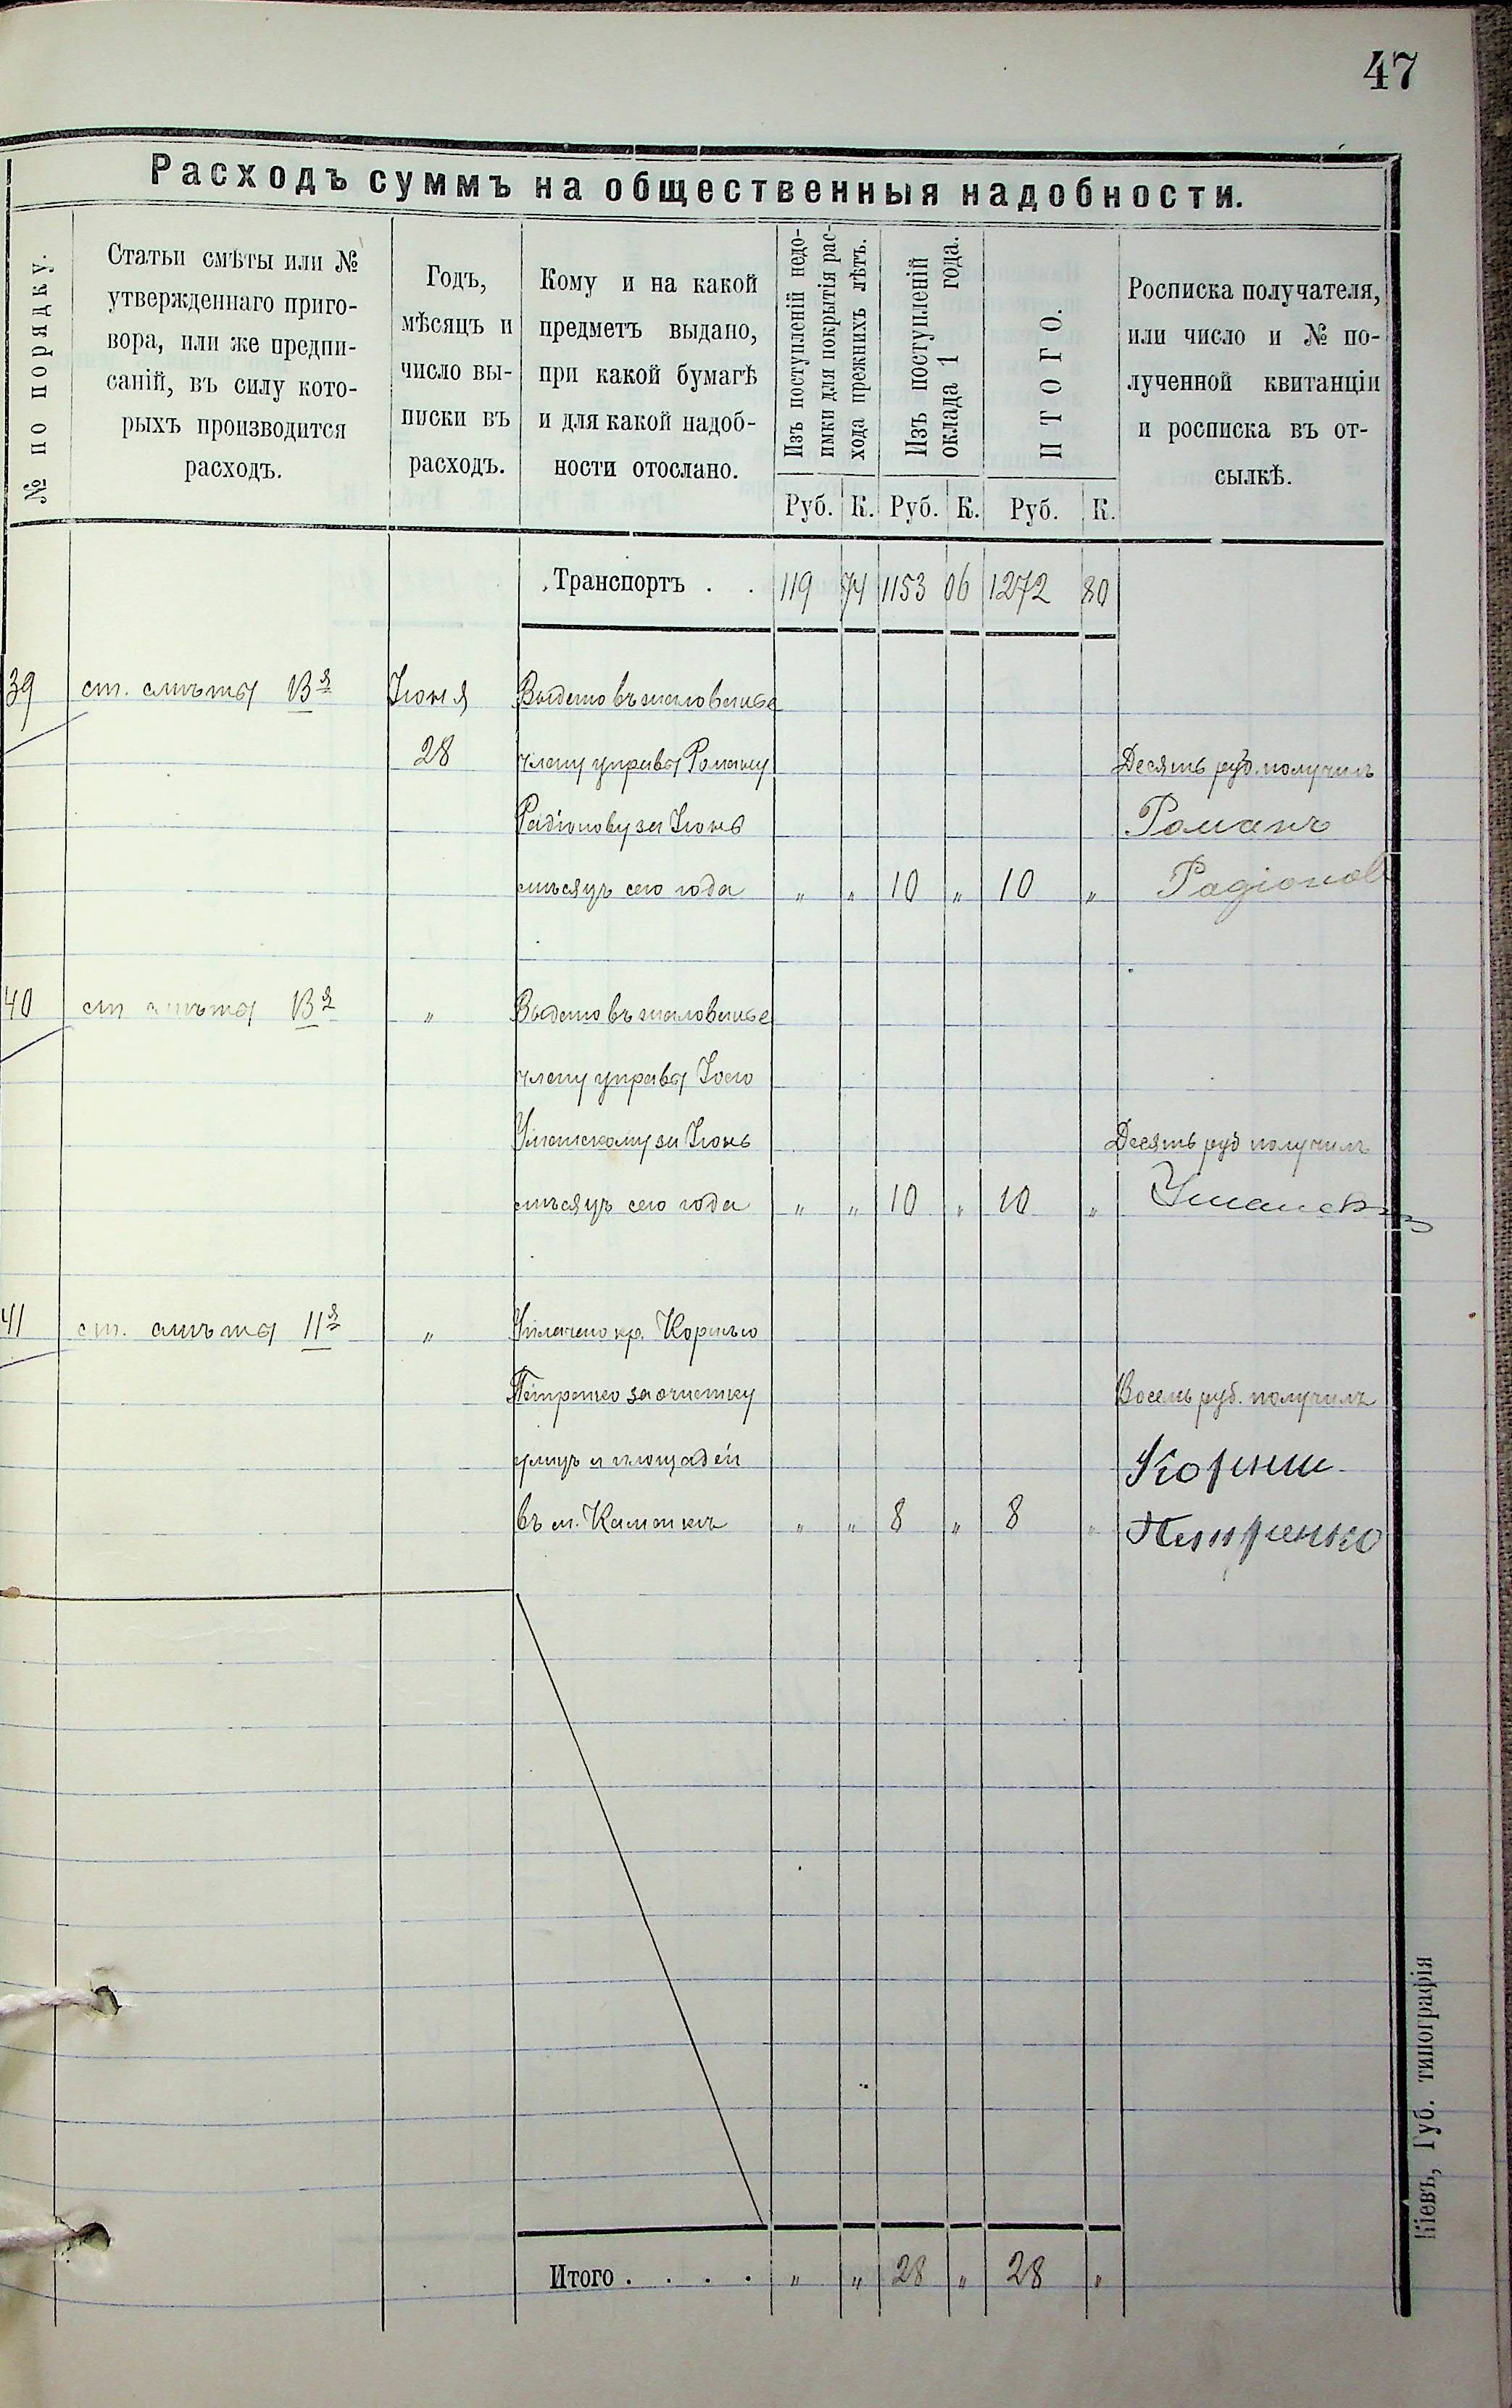 47
Расходъ суммъ на общественныя надобности.
№ по порядку.
Статьи смѣты или №
утвержденнаго приго-
вора, или же предпи-
саній, въ силу кото-
рыхъ производится
расходъ.
Годъ,
мѣсяцъ и
число вы-
писки въ
расходъ.
Кому и на какой
предметъ выдано,
при какой бумагѣ
и для какой надоб-
ности отослано.
Изъ поступленій недо-
имки для покрытія рас-
хода прежнихъ лѣтъ.
Изъ поступленій
оклада 1 года.
ИТОГО.
Росписка получателя,
или число и № по-
лученной квитанціи
и росписка въ от-
сылкѣ.
Руб. К. Руб. К. Руб. К.
Транспортъ . . 119 74 1153 06 1272 80
39 ст. смѣты 13я Іюня Выдано въ жалованье
28 члену управы Роману Десять руб. получилъ
Радіонову за Іюнь Романъ
мѣсяцъ сего года " " 10 " 10 " Радіонов
40 ст смѣты 13я " Выдано въ жалованье
члену управы
Уманскому за Іюнь Десять руб получилъ
мѣсяцъ сего года " " 10 " 10 " Уманскій
41 ст. смѣты 11я " Уплачено кр. Корнѣю
Петренко за очистку Восемь руб. получилъ
улицъ и площадей Корнии
въ м. Каменкѣ " " 8 " 8 " Питренко
Итого . . . . " " 28 " 28 "
Кіевъ, Губ. типографія